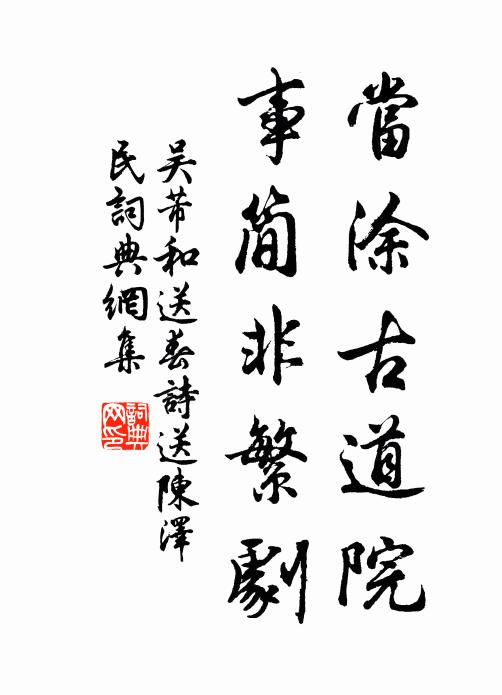 當涂古道院
事简非繁劇
吴芾和送春詩送陳澤
民詞典網集
詞典
网印